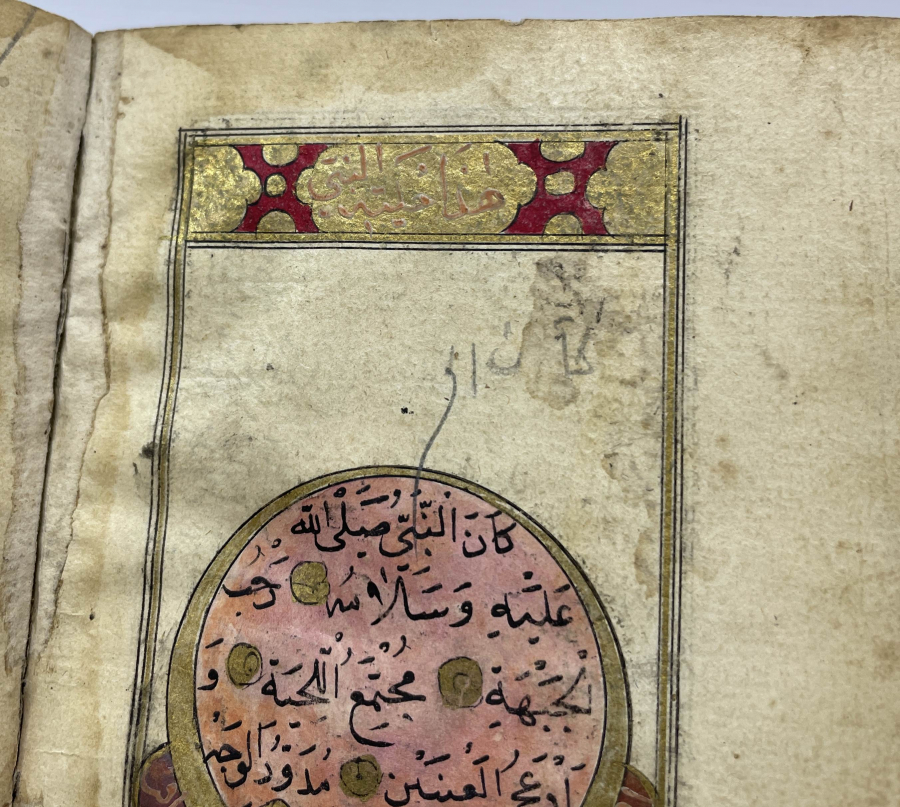 هذا حلية النبي
كان ا
كَانَ النَّبِيُّ صَلَّى الله
عَلَيْهِ وَسَلَّامُهُ رَحْبُ
الْجَبْهَةِ مُجْتَمَعُ اللِّحْيَةِ وَ
أَدْعَجُ الْعَيْنَيْنِ مُدَوَّرُ الْوَجْهِ